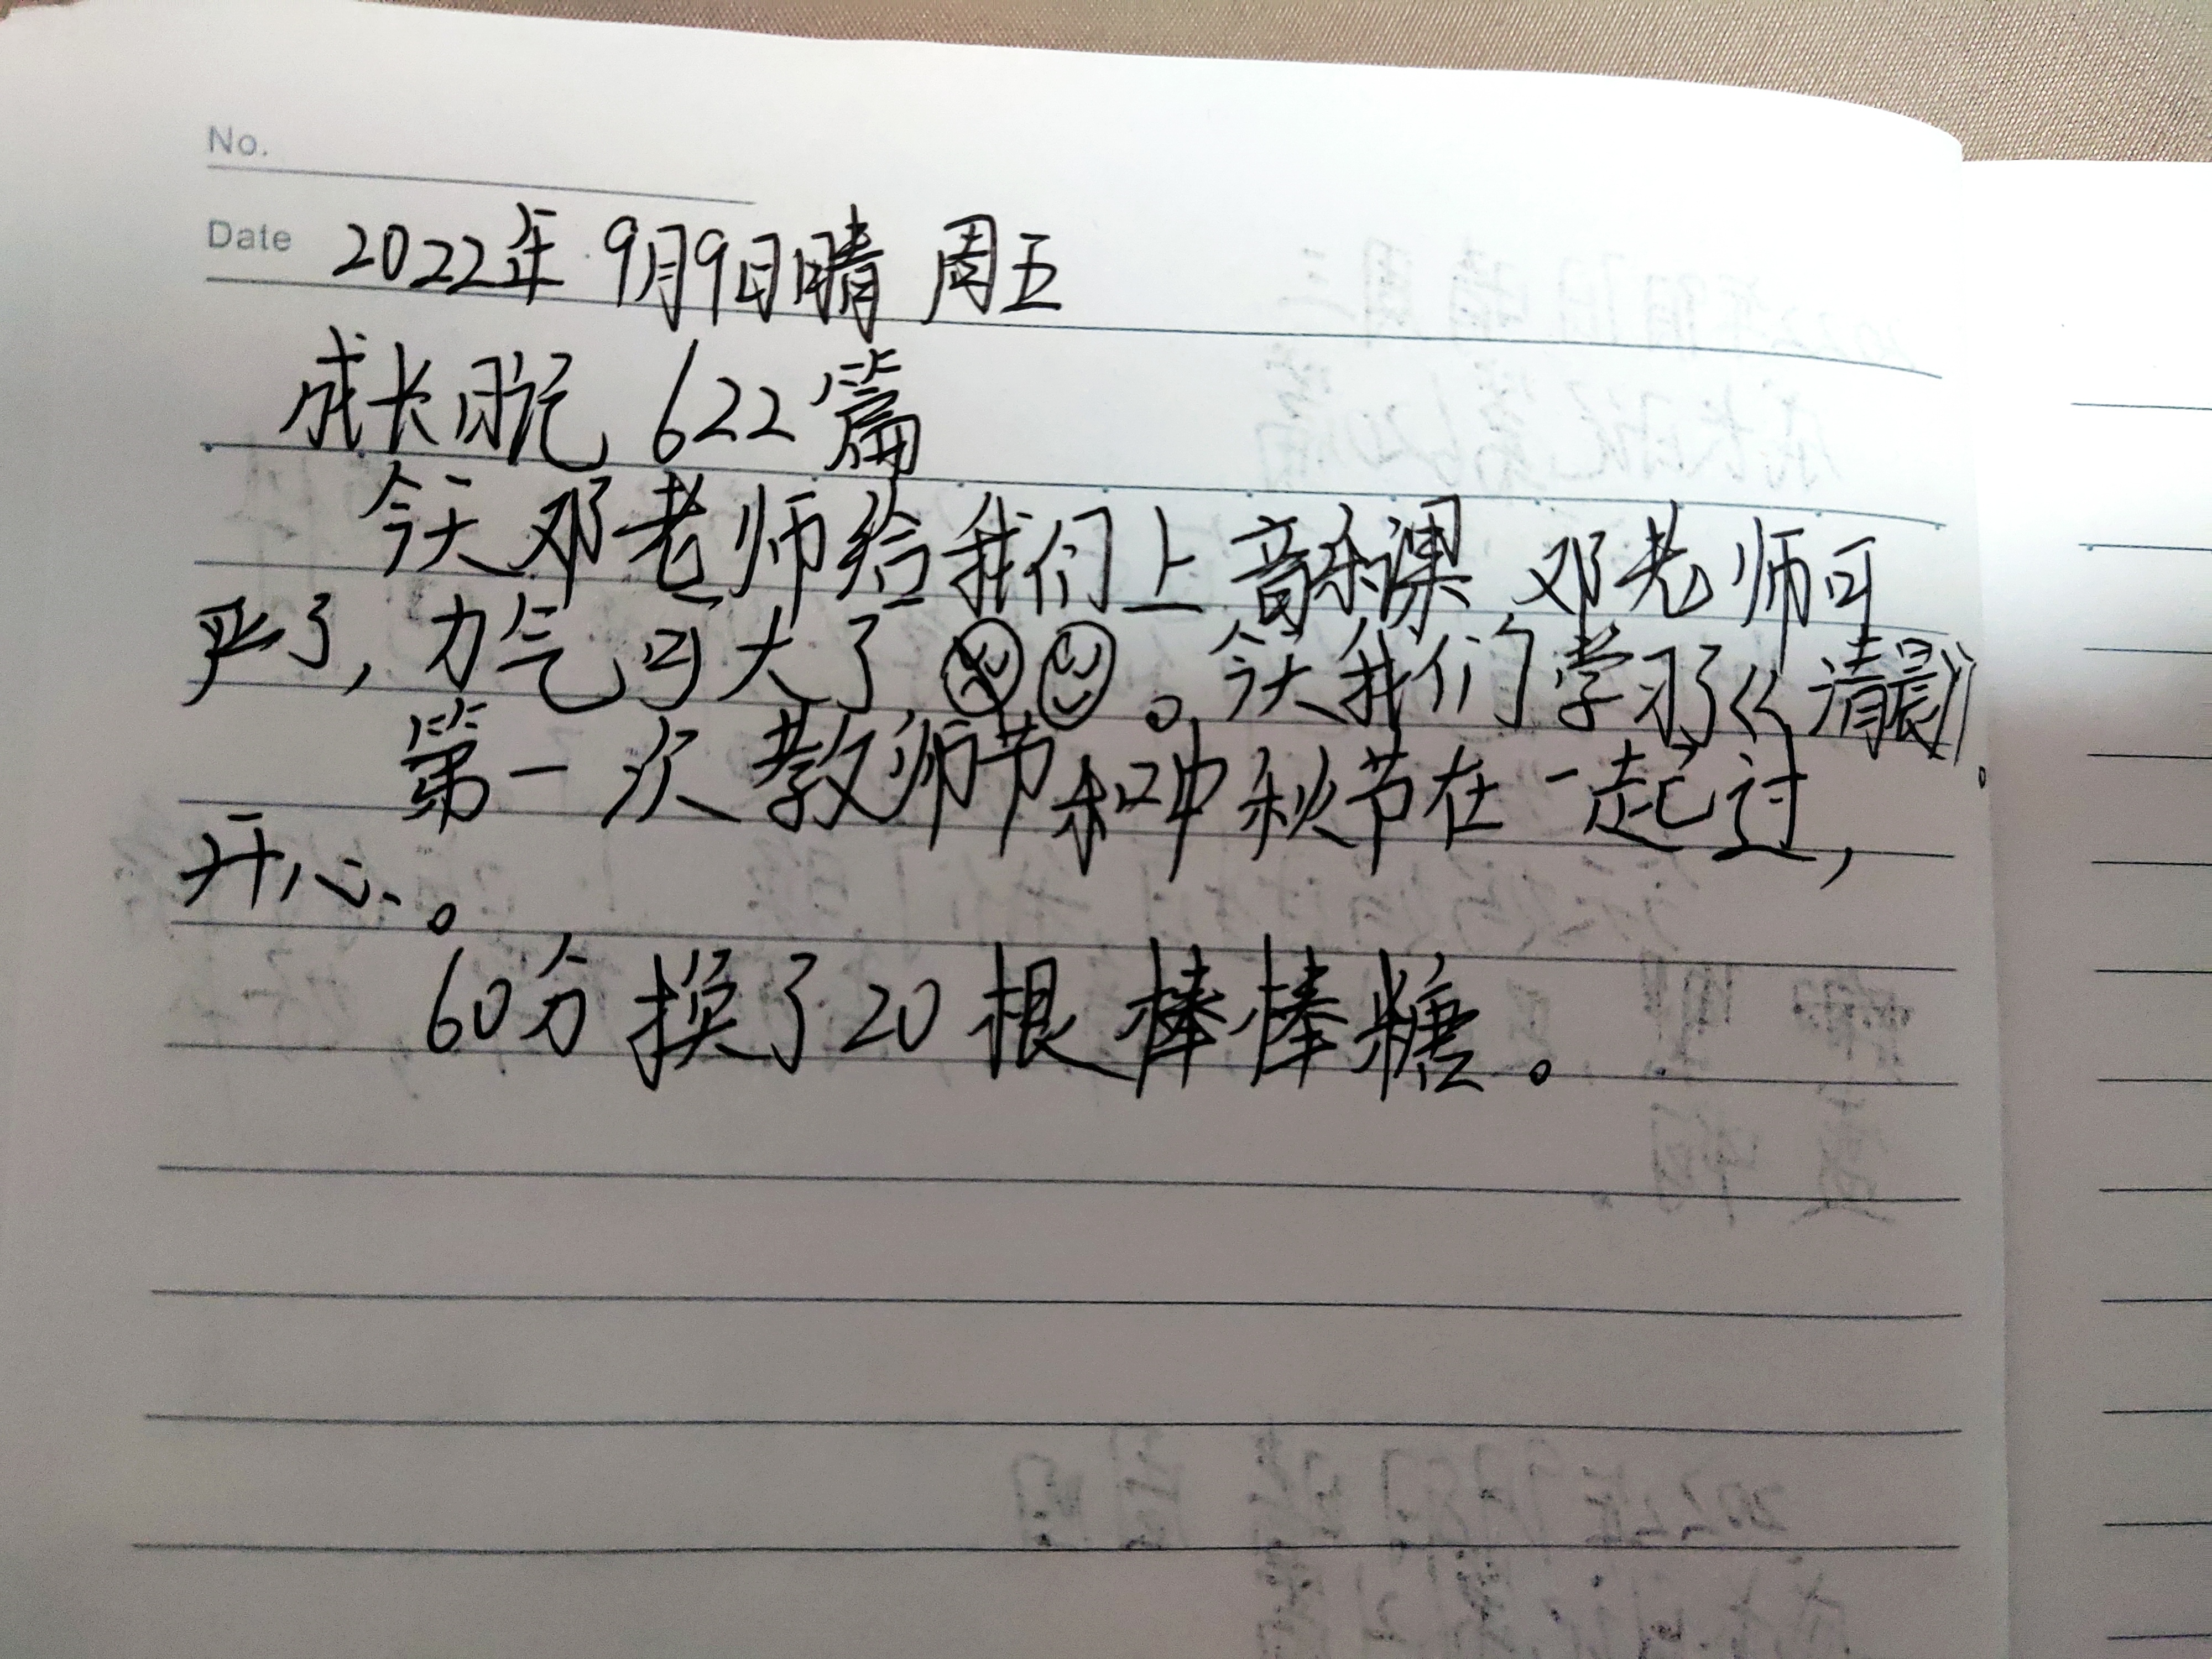 No.
Date 2022年9月9日晴 周五
成长日记 622篇
今天邓老师给我们上音乐课,邓老师可
严了,力气可大了。今天我们学习了《清晨》。
第一次教师节和中秋节在一起过,
开心。
60分换了20根棒棒糖。